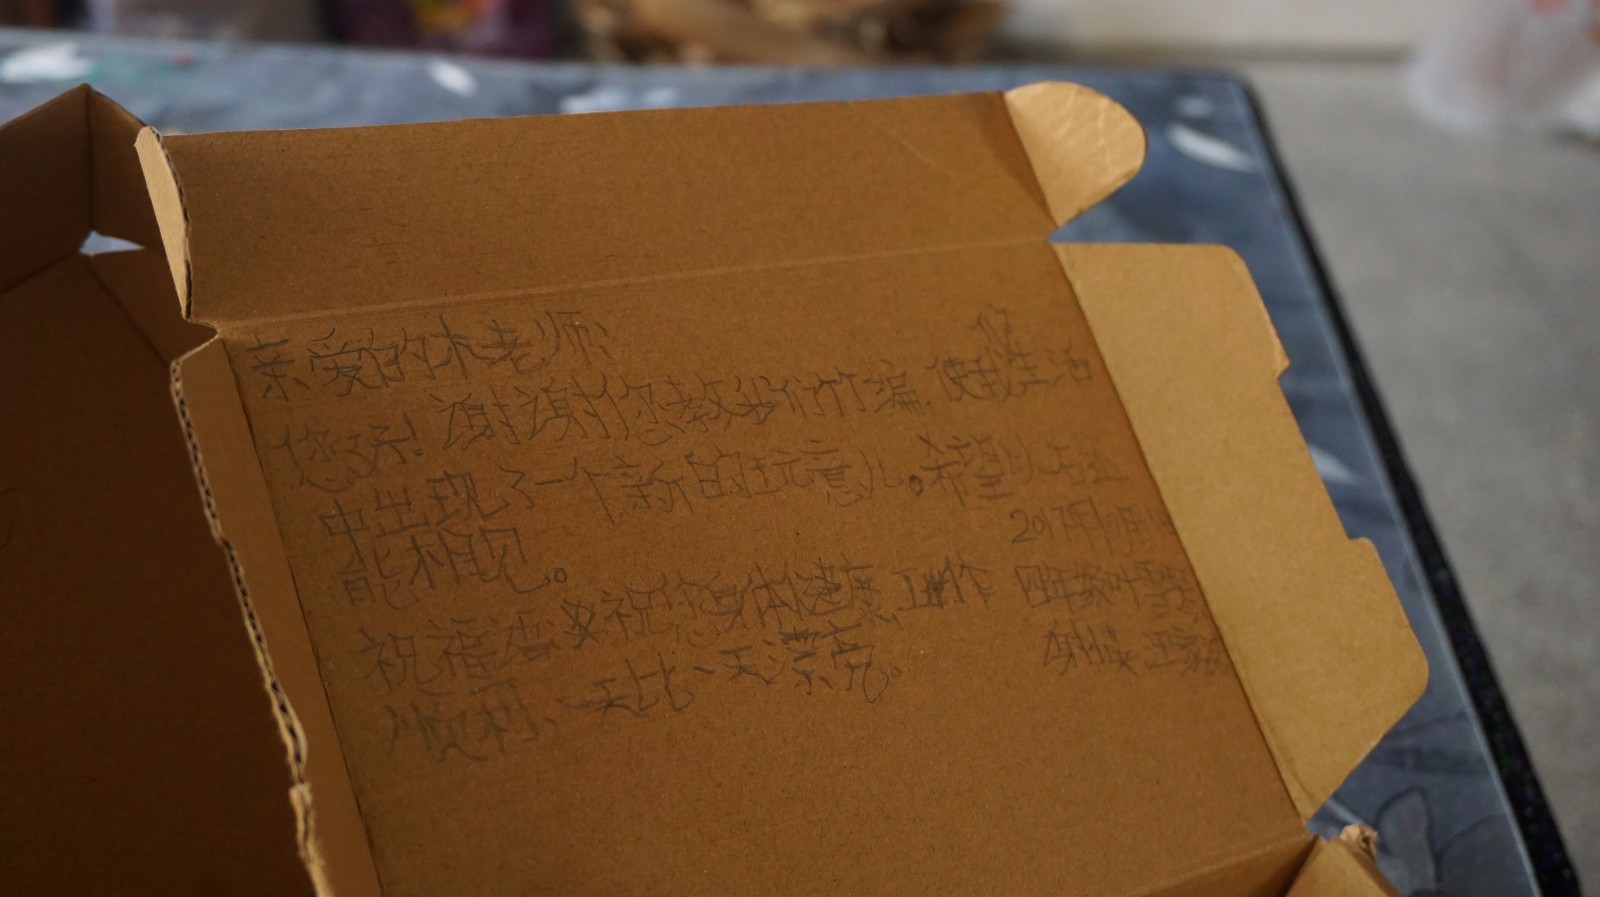 亲爱的木老师：
您好！谢谢您教我竹编，使我生活
中出现了一个新的玩意儿。希望以后
能相见。
祝福语：祝您身体健康 工作
顺利、一天比一天漂亮。
2017年
四年级